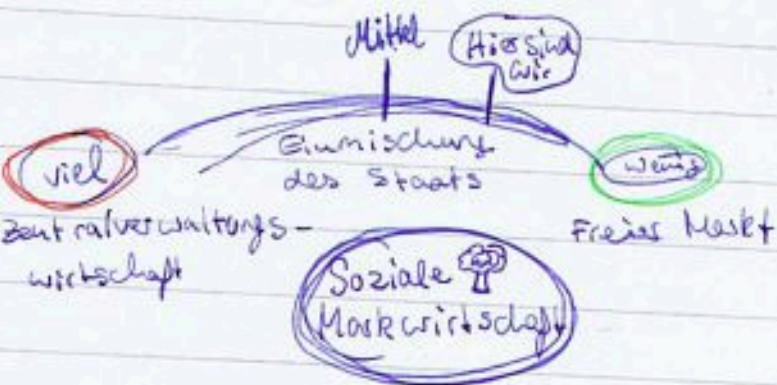 Mittel
Hier sind
wir
viel
Einmischung
des Staats
wenig
Zentralverwaltungs-
wirtschaft
Freier Markt
Soziale
Markwirtschaft